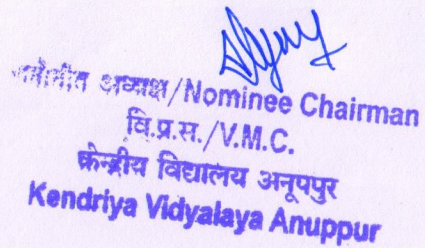 अध्यक्ष/Nominee Chairman
वि.प्र.स./V.M.C.
केन्द्रीय विद्यालय अनूपपुर
Kendriya Vidyalaya Anuppur